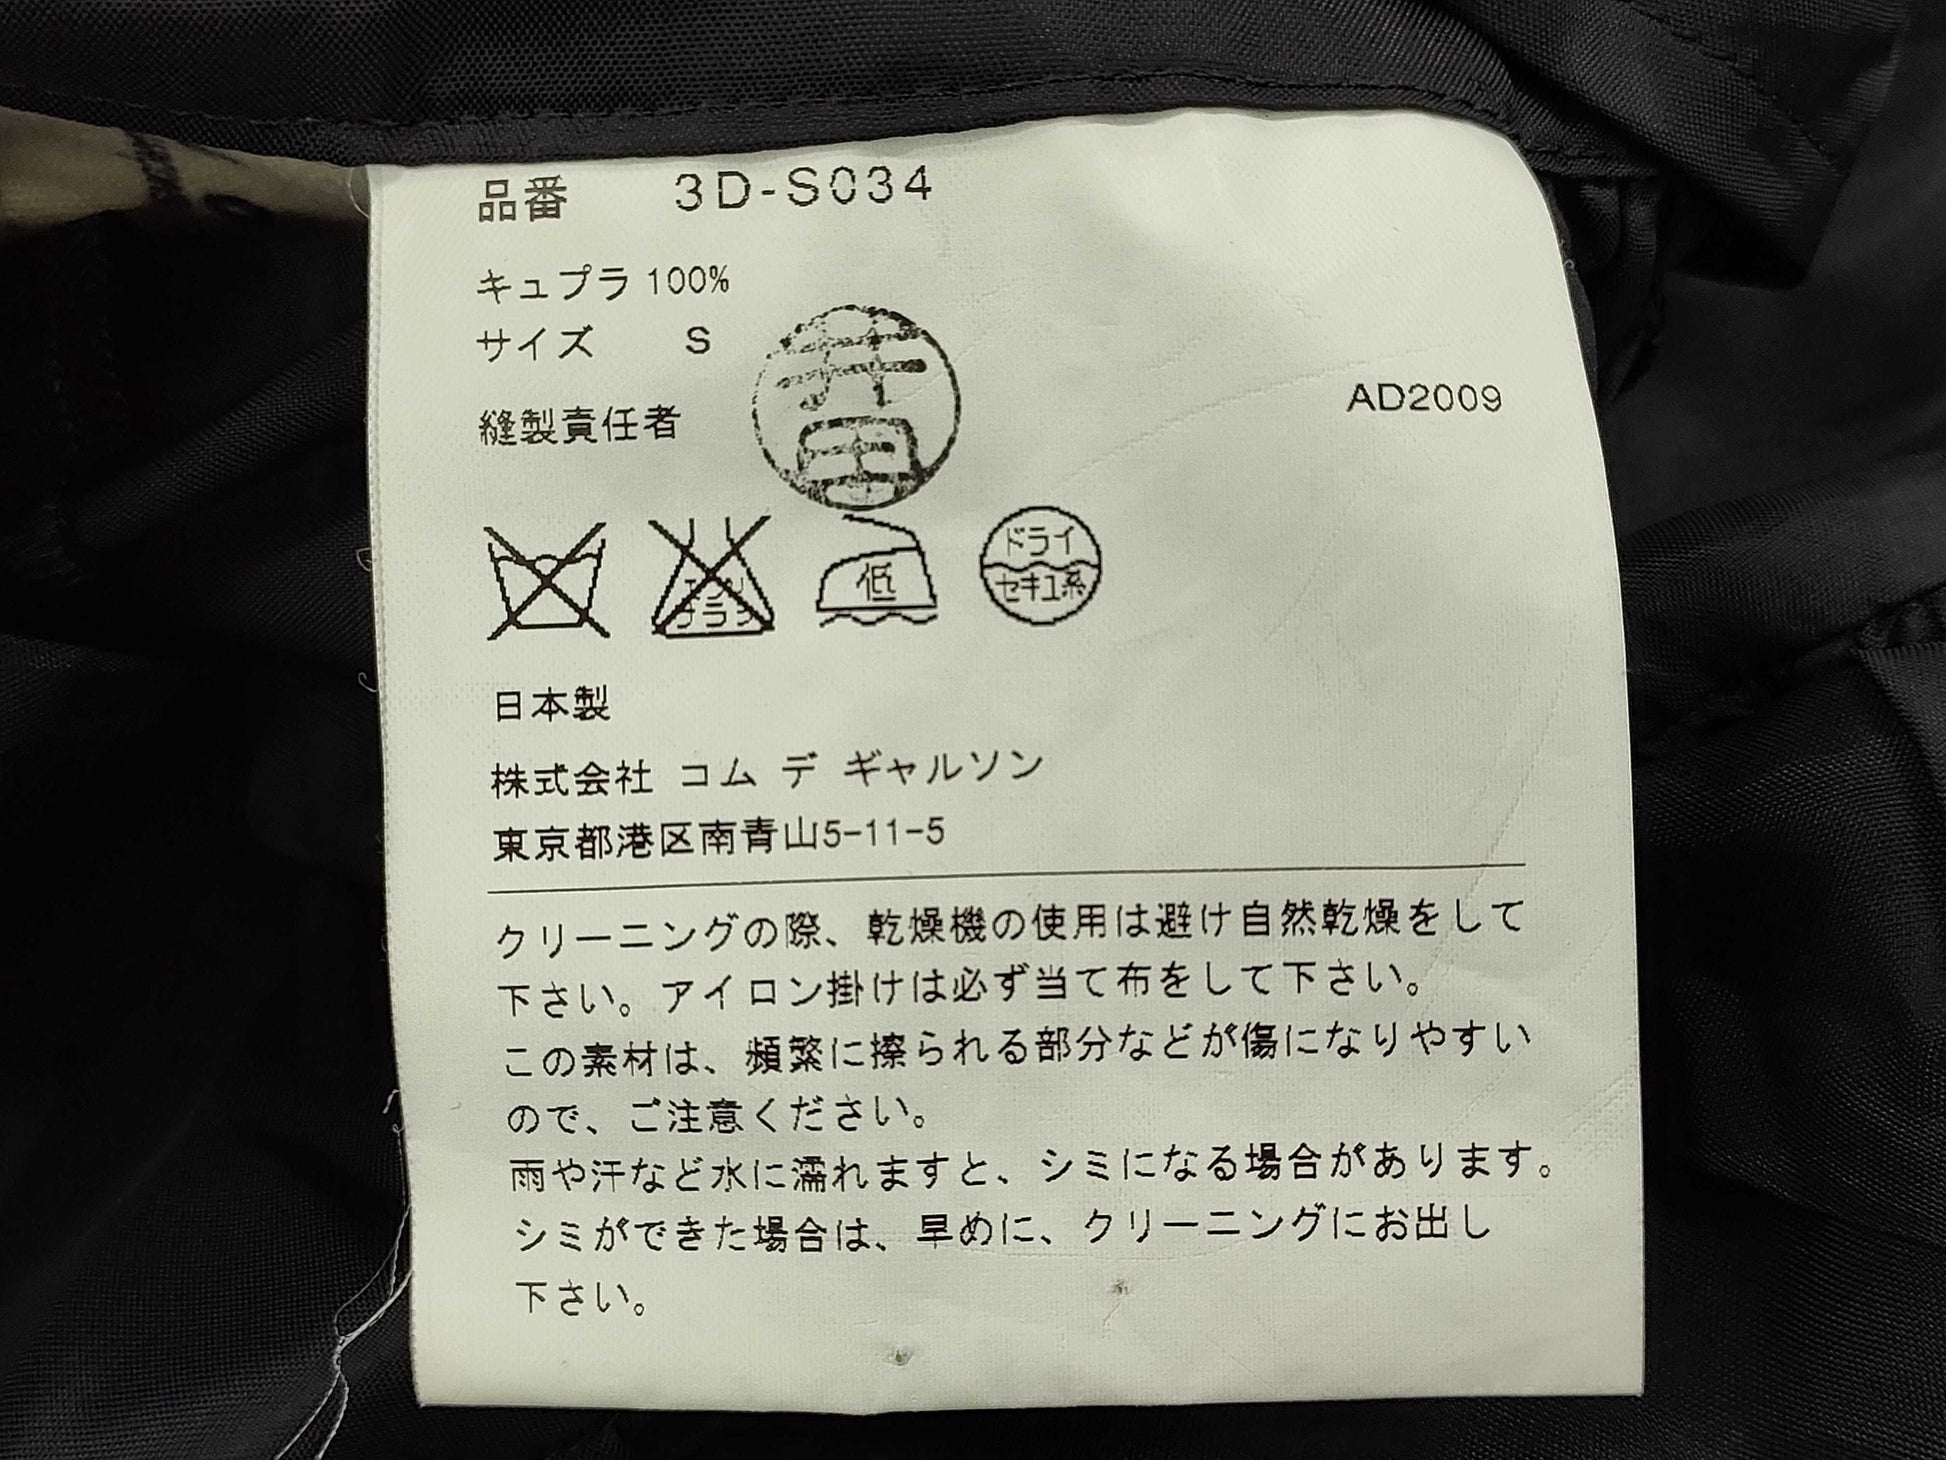 品番 3D-S034
キュプラ 100%
サイズ S
縫製責任者
井田
AD2009
エンソ
サラシ
低
ドライ
セキユ系
日本製
株式会社 コム デ ギャルソン
東京都港区南青山5-11-5
クリーニングの際、乾燥機の使用は避け自然乾燥をして
下さい。アイロン掛けは必ず当て布をして下さい。
この素材は、頻繁に擦られる部分などが傷になりやすい
ので、ご注意ください。
雨や汗など水に濡れますと、シミになる場合があります。
シミができた場合は、早めに、クリーニングにお出し
下さい。